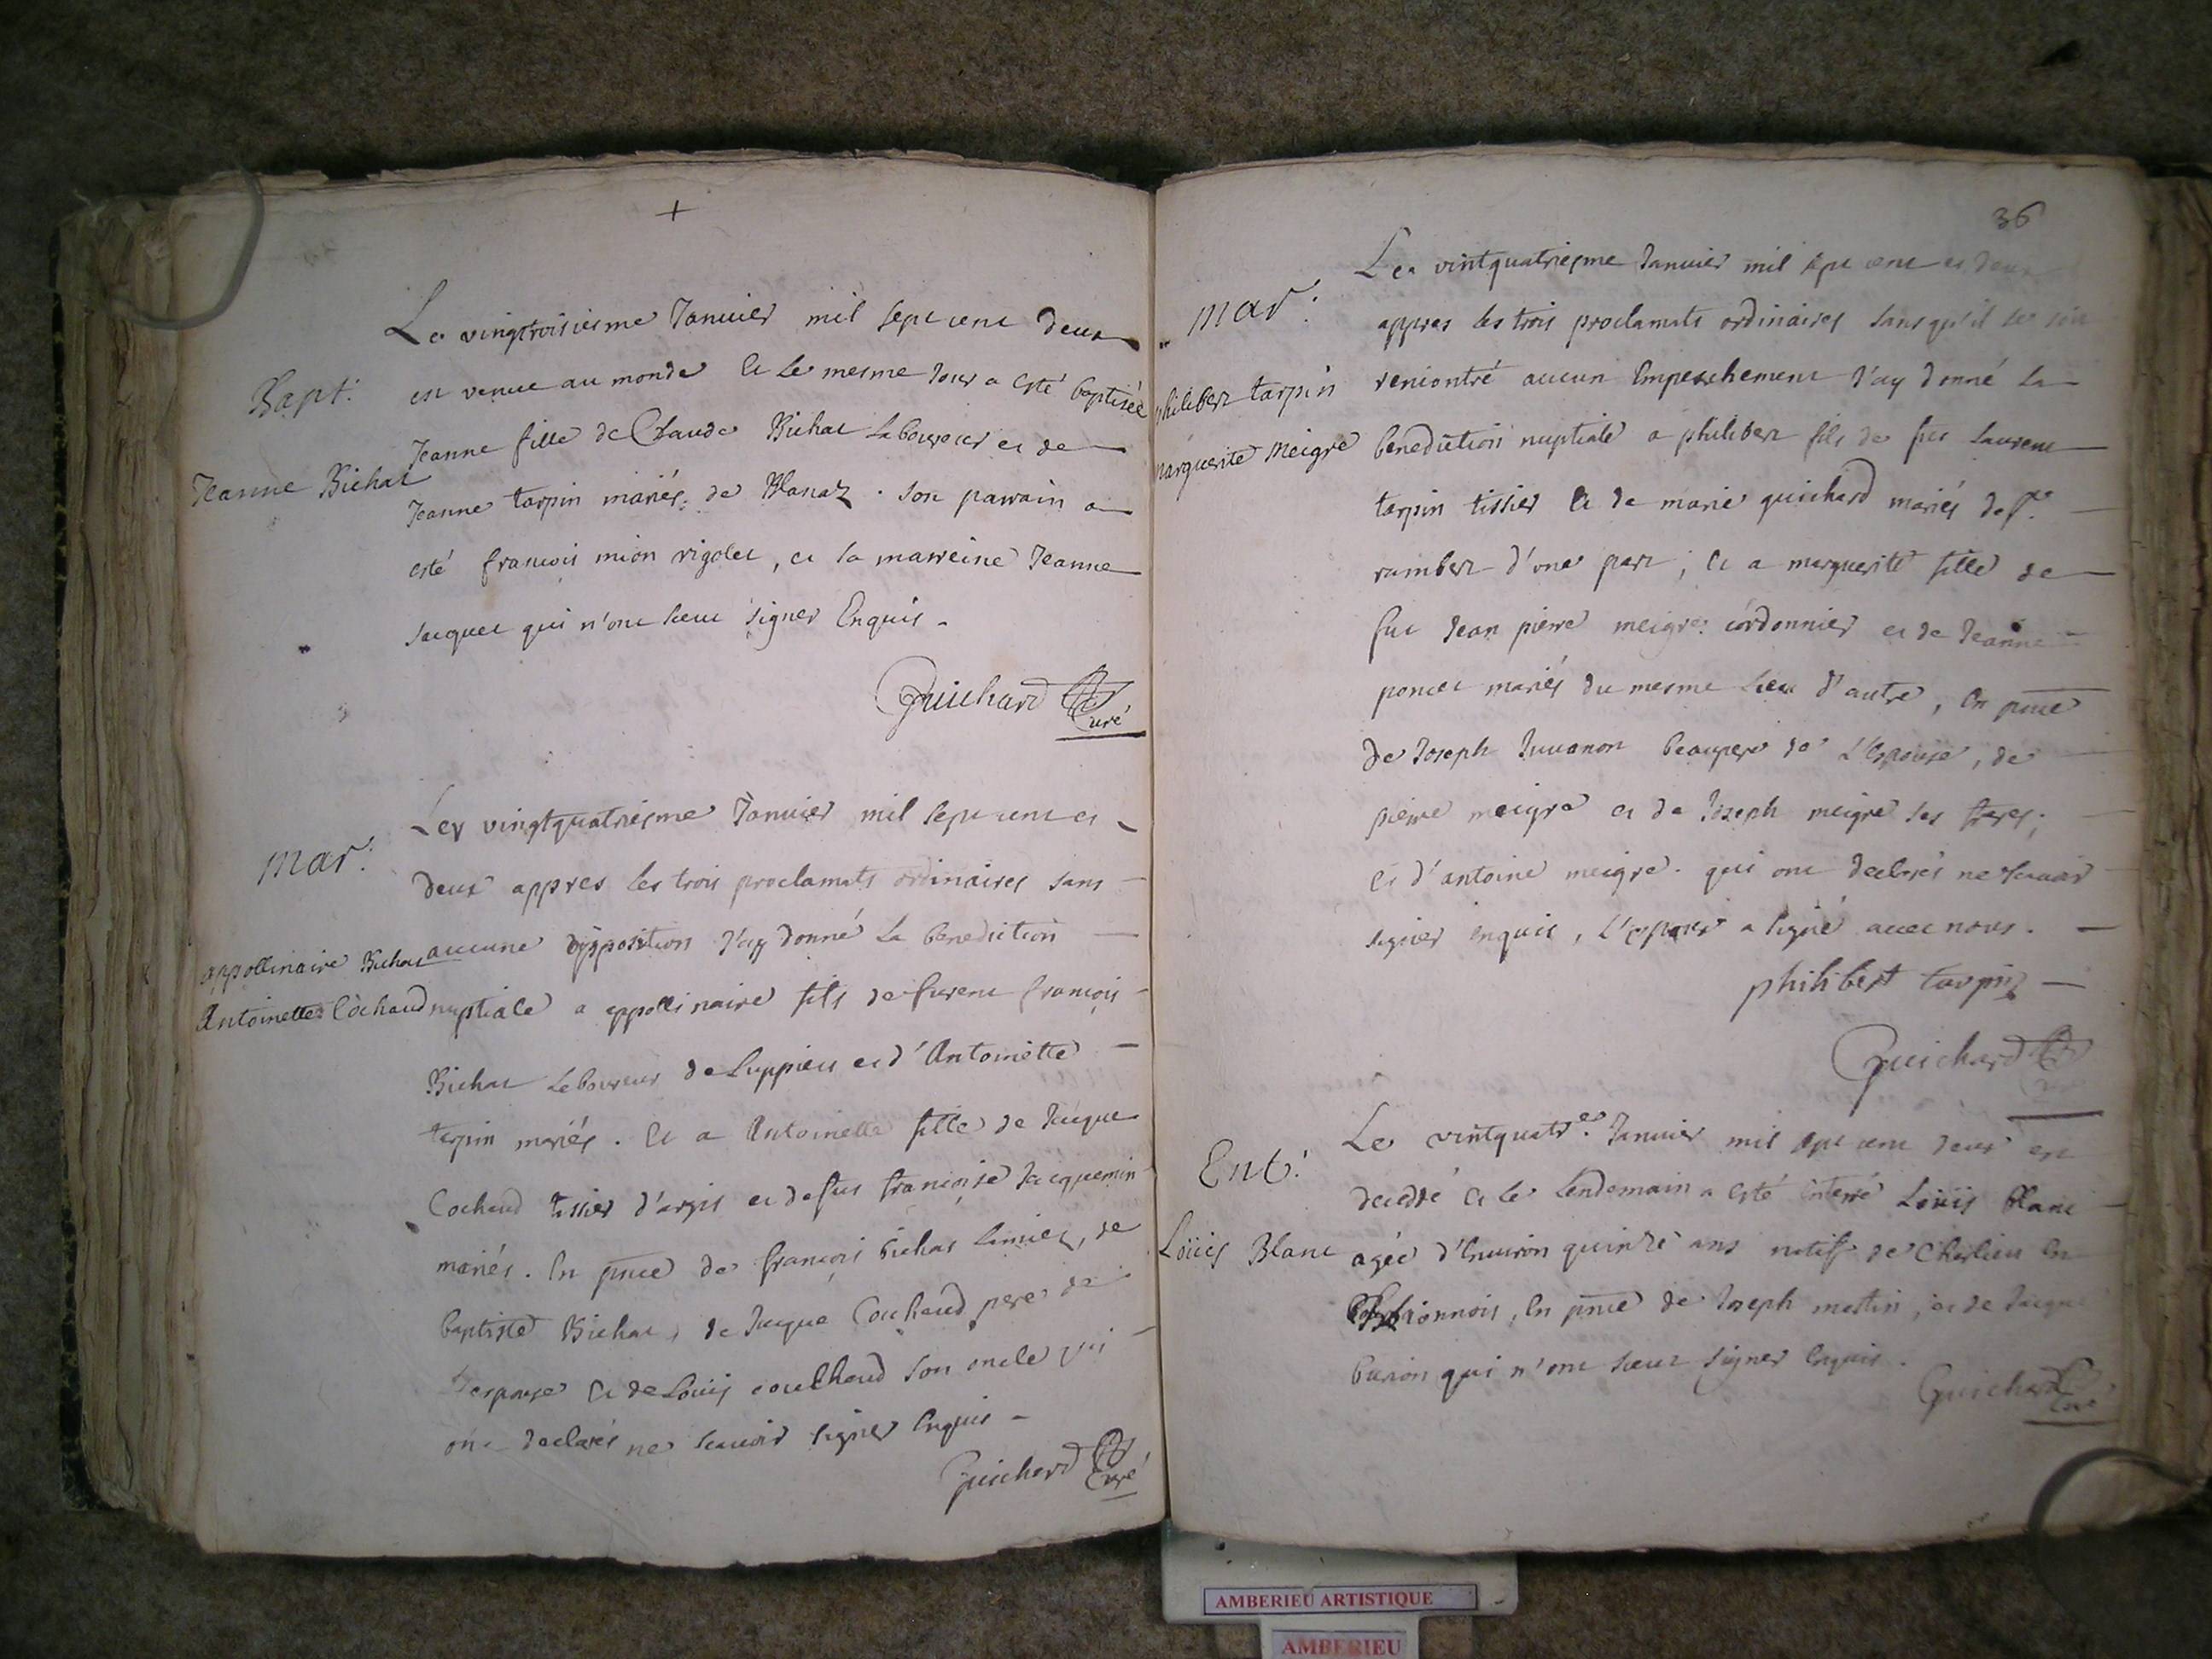 +
Le vingtroisiesme Januier mil sept cent deux
Bapt: est venue au monde et le mesme jour a esté baptisée
Jeanne fille de Claude Bichat laboureur et de
Jeanne Bichat
Jeanne tarpin mariés de Blanaz. son parrain a
esté francois mion rigolet, et la marreine Jeanne
Jacquet qui n'ont sceu signer Enquis.
Guichard Curé
Le vingtquatriesme Januier mil sept cent et
mar:
deux appres les trois proclamats ordinaires sans
appollinaire Bichat aucune opposition J'ay donné la benediction
Antoinette Cochaud nuptiale a appollinaire fils de furent francois
Bichat laboureur de Luppieu et d'Antoinette
tarpin mariés. Et a Antoinette fille de Jacque
Cochaud tissier d'argis et de fue francoise Jacquemin
mariés. En pnce de francois bichat, de
baptiste Bichat, de Jacque Cochaud pere de
l'espouse et de Louis cochaud son oncle qui
ont declarés ne scauoir signer Enquis
Guichard Curé
36
Le vintquatriesme Januier mil sept cent et deux
mar:
appres les trois proclamats ordinaires sans qu'il se soit
philibert tarpin rencontré aucun Empeschement J'ay donné la
marguerite Meigre benediction nuptiale a philibert fils de fut Laurent
tarpin tissier et de marie guichard mariés de st
rambert d'une part; et a marguerite fille de
fut Jean pierre meigre cordonnier et de Jeanne
poncet mariés du mesme lieu d'autre, En pnce
de Joseph Juuanon beaupere de l'espouse, de
pierre meigre et de Joseph meigre ses freres;
et d'antoine meigre. qui ont declarés ne scauoir
signer enquis, l'espoux a signé auec nous.
philibert tarpin
Guichard Curé
Le vintquatre Januier mil sept cent deux est
Ent:
decedé et le lendemain a esté enterré Loüis Blanc
Loüis Blanc agée d'Enuiron quinze ans natif de Charlieu En
En pnce de Joseph martin, et de Jacque
buson qui n'ont sceut signer Enquis.
Guichard Curé
AMBERIEU ARTISTIQUE
AMBERIEU